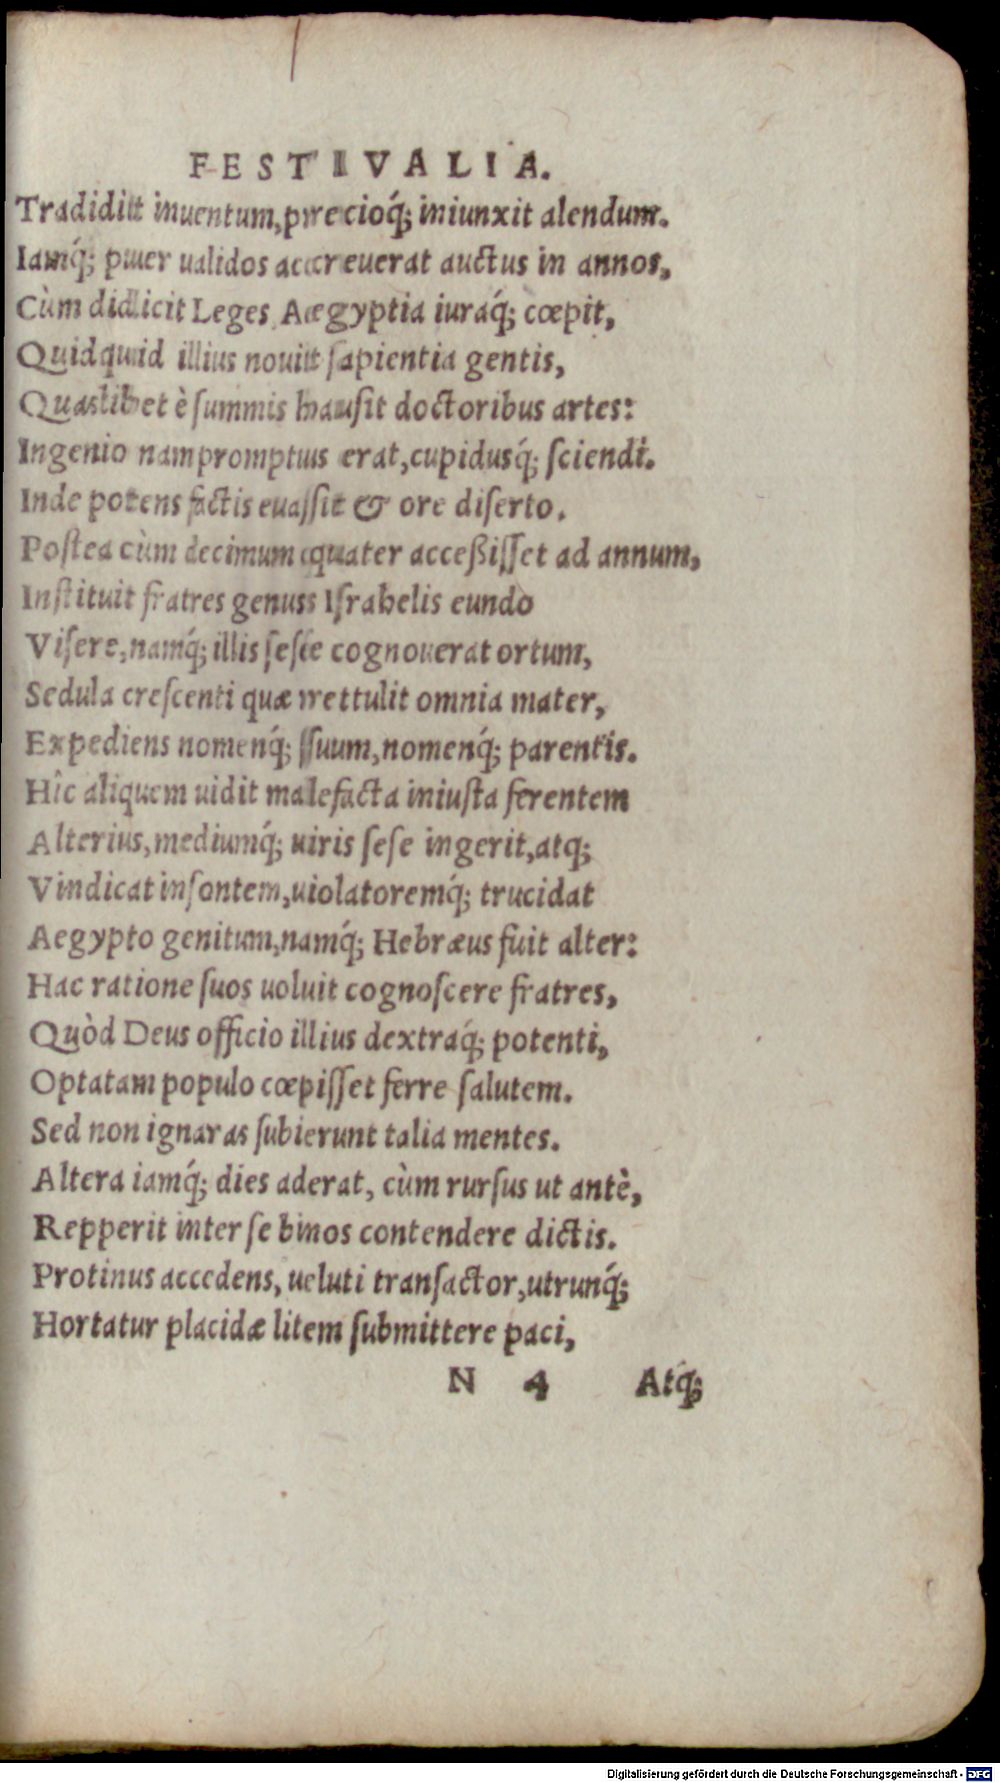 FESTIVALIA.
Tradidit inuentum, precioq́; iniunxit alendum.
Iamq́; puer ualidos accreuerat auctus in annos,
Cùm didicit Leges Aegyptia iuraq́; cœpit,
Quidquid illius nouit ſapientia gentis,
Quaslibet è ſummis hauſit doctoribus artes:
Ingenio nam promptus erat, cupidusq́; ſciendi.
Inde potens factis euaſſit & ore diſerto.
Poſtea cùm decimum quater acceßiſſet ad annum,
Inſtituit fratres genus Iſrahelis eundo
Viſere, namq́; illis ſeſe cognouerat ortum,
Sedula creſcenti quæ rettulit omnia mater,
Expediens nomenq́; ſuum, nomenq́; parentis.
Hîc aliquem uidit malefacta iniuſta ferentem
Alterius, mediumq́; uiris ſeſe ingerit, atq;
Vindicat inſontem, uiolatoremq́; trucidat
Aegypto genitum, namq́; Hebræus fuit alter:
Hac ratione ſuos uoluit cognoſcere fratres,
Quòd Deus officio illius dextraq́; potenti,
Optatam populo cœpiſſet ferre ſalutem.
Sed non ignaras ſubierunt talia mentes.
Altera iamq́; dies aderat, cùm rurſus ut antè,
Repperit inter ſe binos contendere dictis.
Protinus accedens, ueluti tranſactor, utrunq́;
Hortatur placidæ litem ſubmittere paci,
N 4 Atq́;
Digitalisierung gefördert durch die Deutsche Forschungsgemeinschaft - DFG